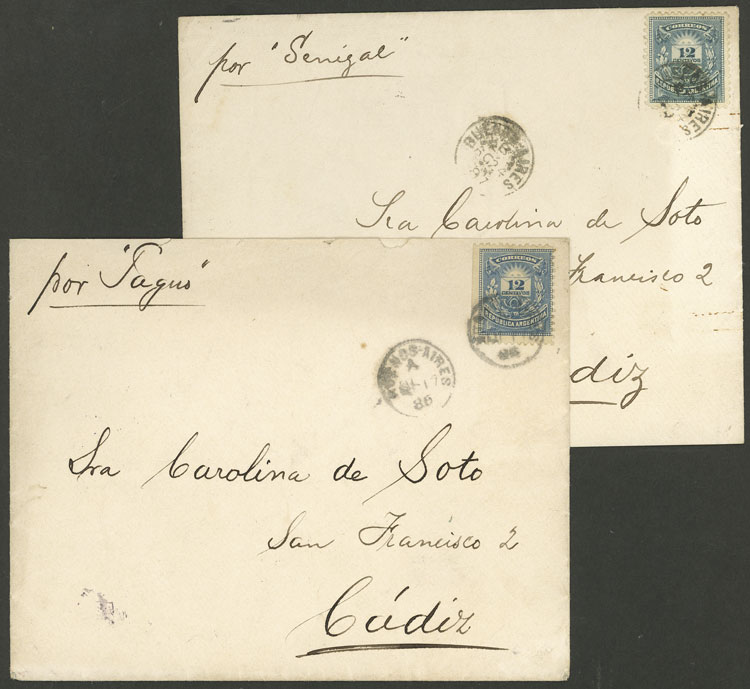 por "Senégal"
CORREOS
12
CENTAVOS
BUENOS-AIRES
Sra Carolina de Soto
Francisco 2
ádiz
por "Tagus"
CORREOS
12
CENTAVOS
REPUBLICA ARGENTINA
BUENOS-AIRES
A
17
86
Sra Carolina de Soto
San Francisco 2
Cádiz